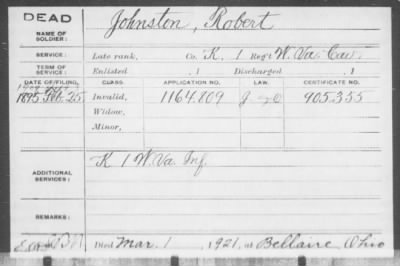 DEAD
NAME OF SOLDIER: Johnston, Robert
SERVICE: Late rank, Co. K, 1 Reg't W. Va. Cav.
TERM OF SERVICE: Enlisted , 1 Discharged , 1
DATE OF FILING. CLASS. APPLICATION NO. LAW. CERTIFICATE NO.
1895 Feb. 25 Invalid, 1164.809 905.355
Widow,
Minor,
ADDITIONAL SERVICES: K 1 W. Va. Inf.
REMARKS:
Died Mar. 1, 1921, at Bellaire, Ohio